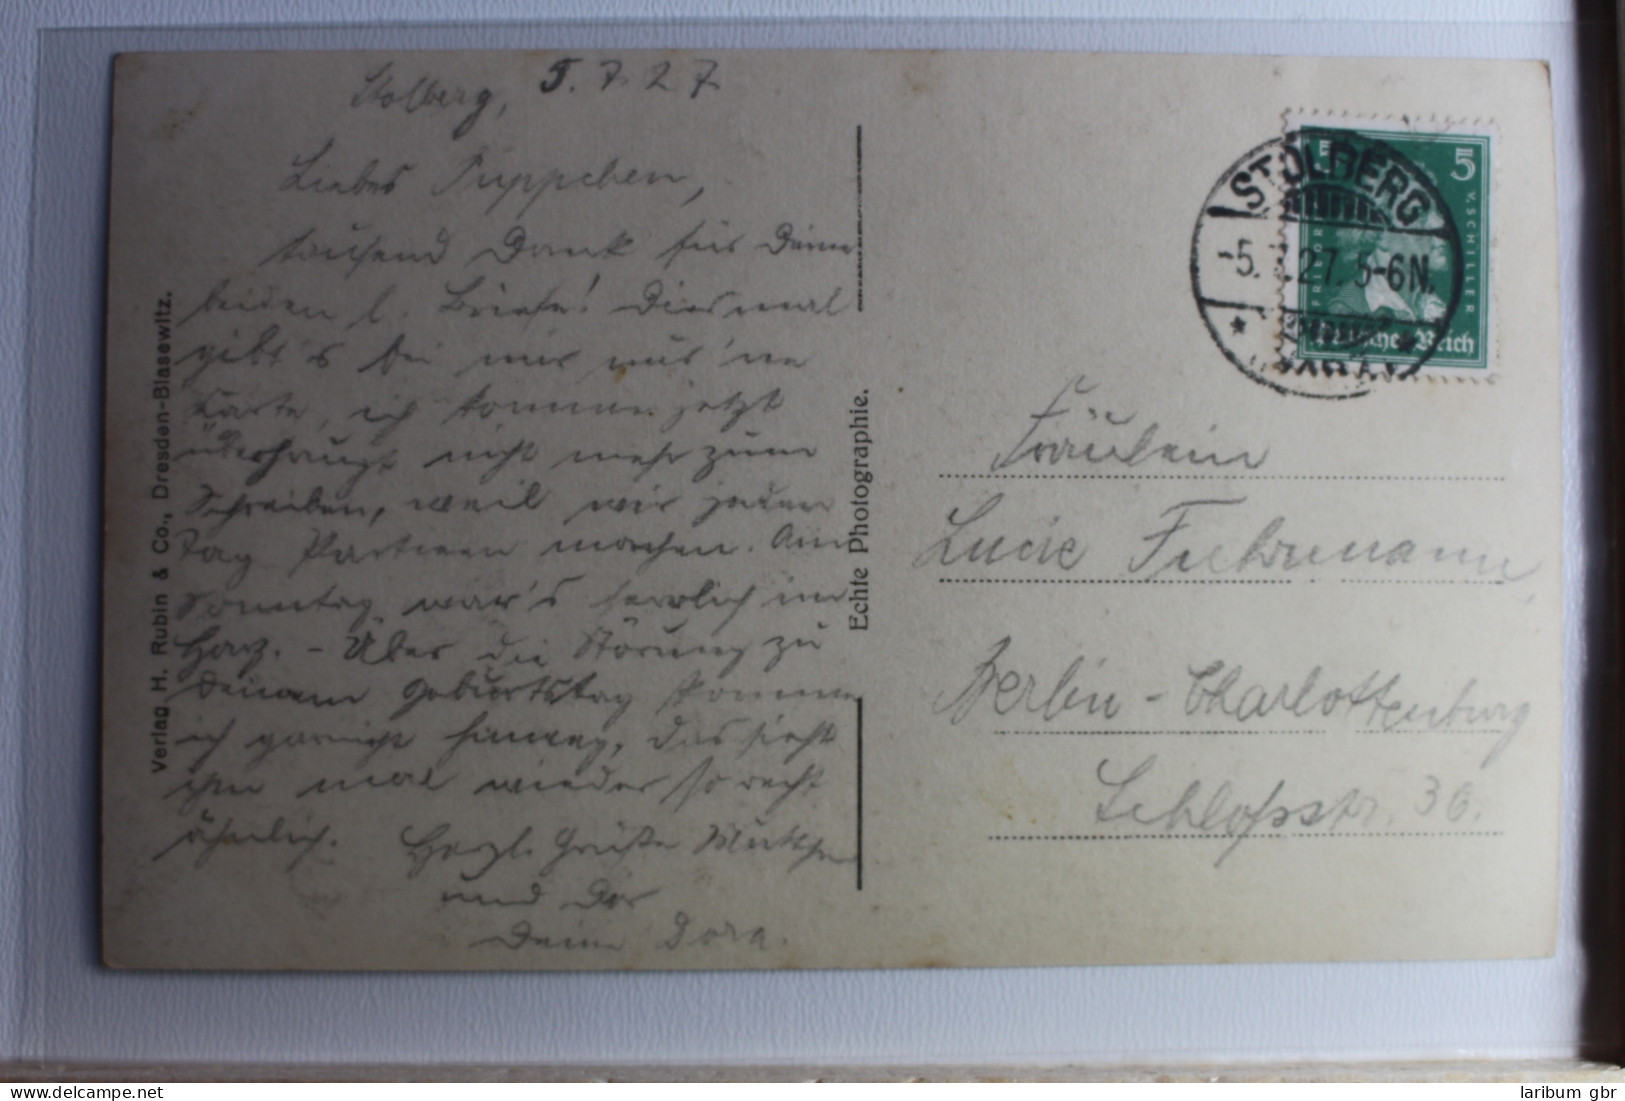 Stolberg, 5.7.27
Liebes Puppchen,
tausend Dank für Deine
beiden l. Briefe! Diesmal
gibt's bei mir nur 'ne
Karte, ich komme jetzt
überhaupt nicht mehr zum
Schreiben, weil wir jeden
Tag Partieen machen. Am
Sonntag war's herrlich im
Harz. – Über die Störung zu
Deinem Geburtstag komme
ich garnicht hinweg, das sieht
ihm mal wieder so recht
ähnlich. Herzl. Grüße Muttchen
und Dir
Deine Dora.
Verlag H. Rubin & Co., Dresden-Blasewitz.
Echte Photographie.
STOLBERG
-5. .27. 5-6N.
5
FRIEDR. V. SCHILLER
Deutsches Reich
Fräulein
Lucie Fuhrmann,
Berlin-Charlottenburg
Schloßstr. 36.
delcampe.net
laribum gbr